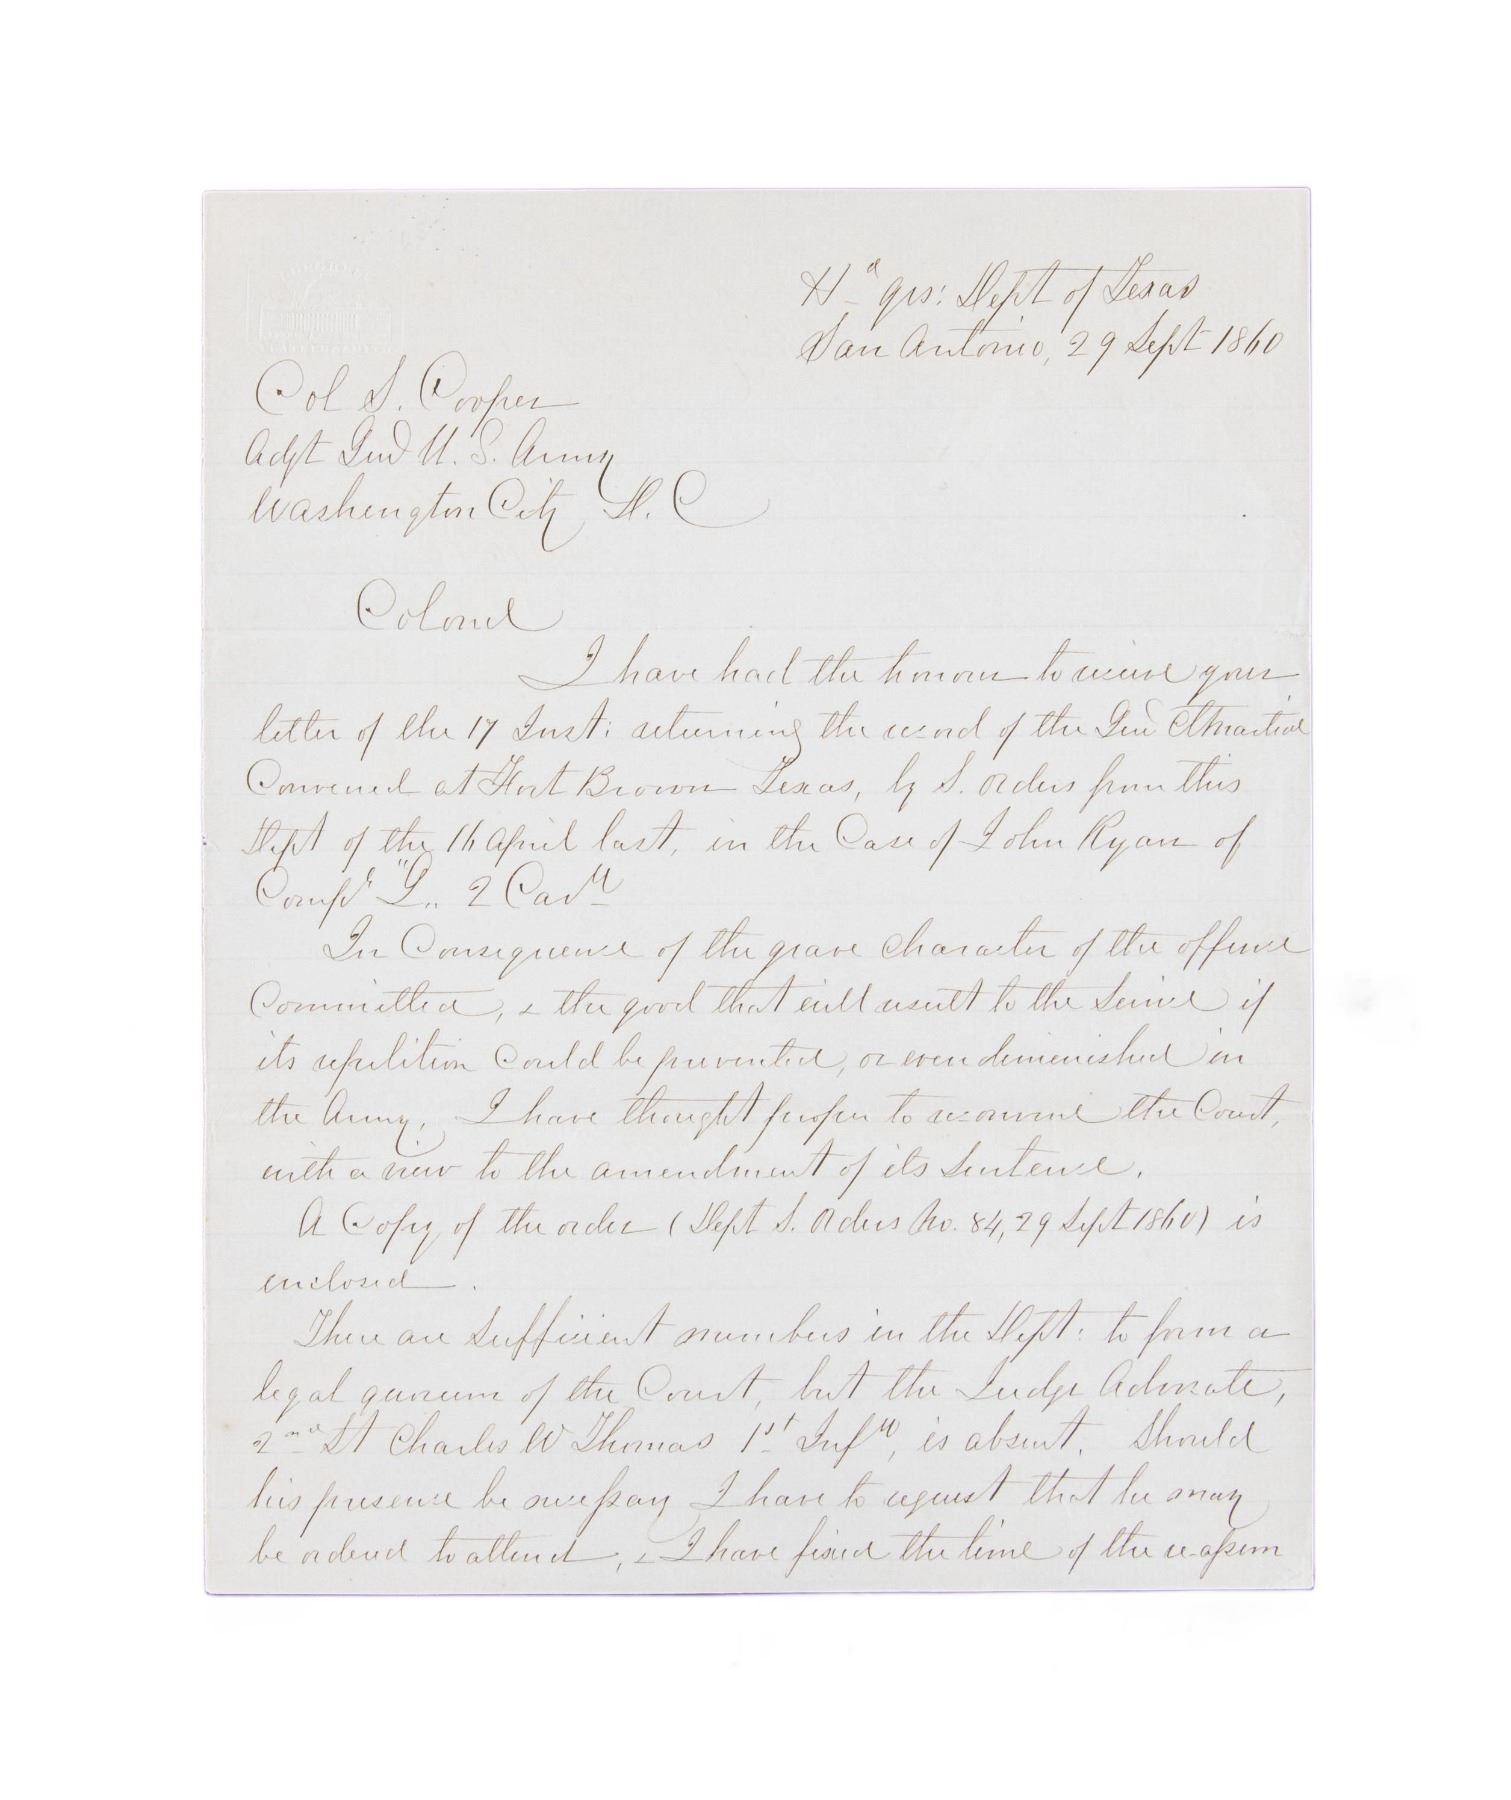 Hd qrs: Dept of Texas
San Antonio, 29 Sept 1860
Col S. Cooper
Adjt Genl U. S. Army
Washington City D. C
Colonel
I have had the honour to receive your
letter of the 17 Inst: returning the record of the Genl Ct Martial
Convened at Fort Brown Texas, by S. Orders from this
Dept of the 16 April last, in the Case of John Ryan of
Compy 2 Cavy
In Consequence of the grave character of the offence
Committed, & the good that will result to the Service if
its repetition could be prevented, or even diminished in
the Army, I have thought proper to reconvene the Court,
with a view to the amendment of its Sentence.
A Copy of the order (Dept S. Orders No. 84, 29 Sept 1860) is
enclosed.
There are Sufficient members in the Dept: to form a
legal quorum of the Court, but the Judge Advocate,
2nd Lt Charles W Thomas 1st Infy, is absent. Should
his presence be necessary I have to request that he may
be ordered to attend, & I have fixed the time of the reassem